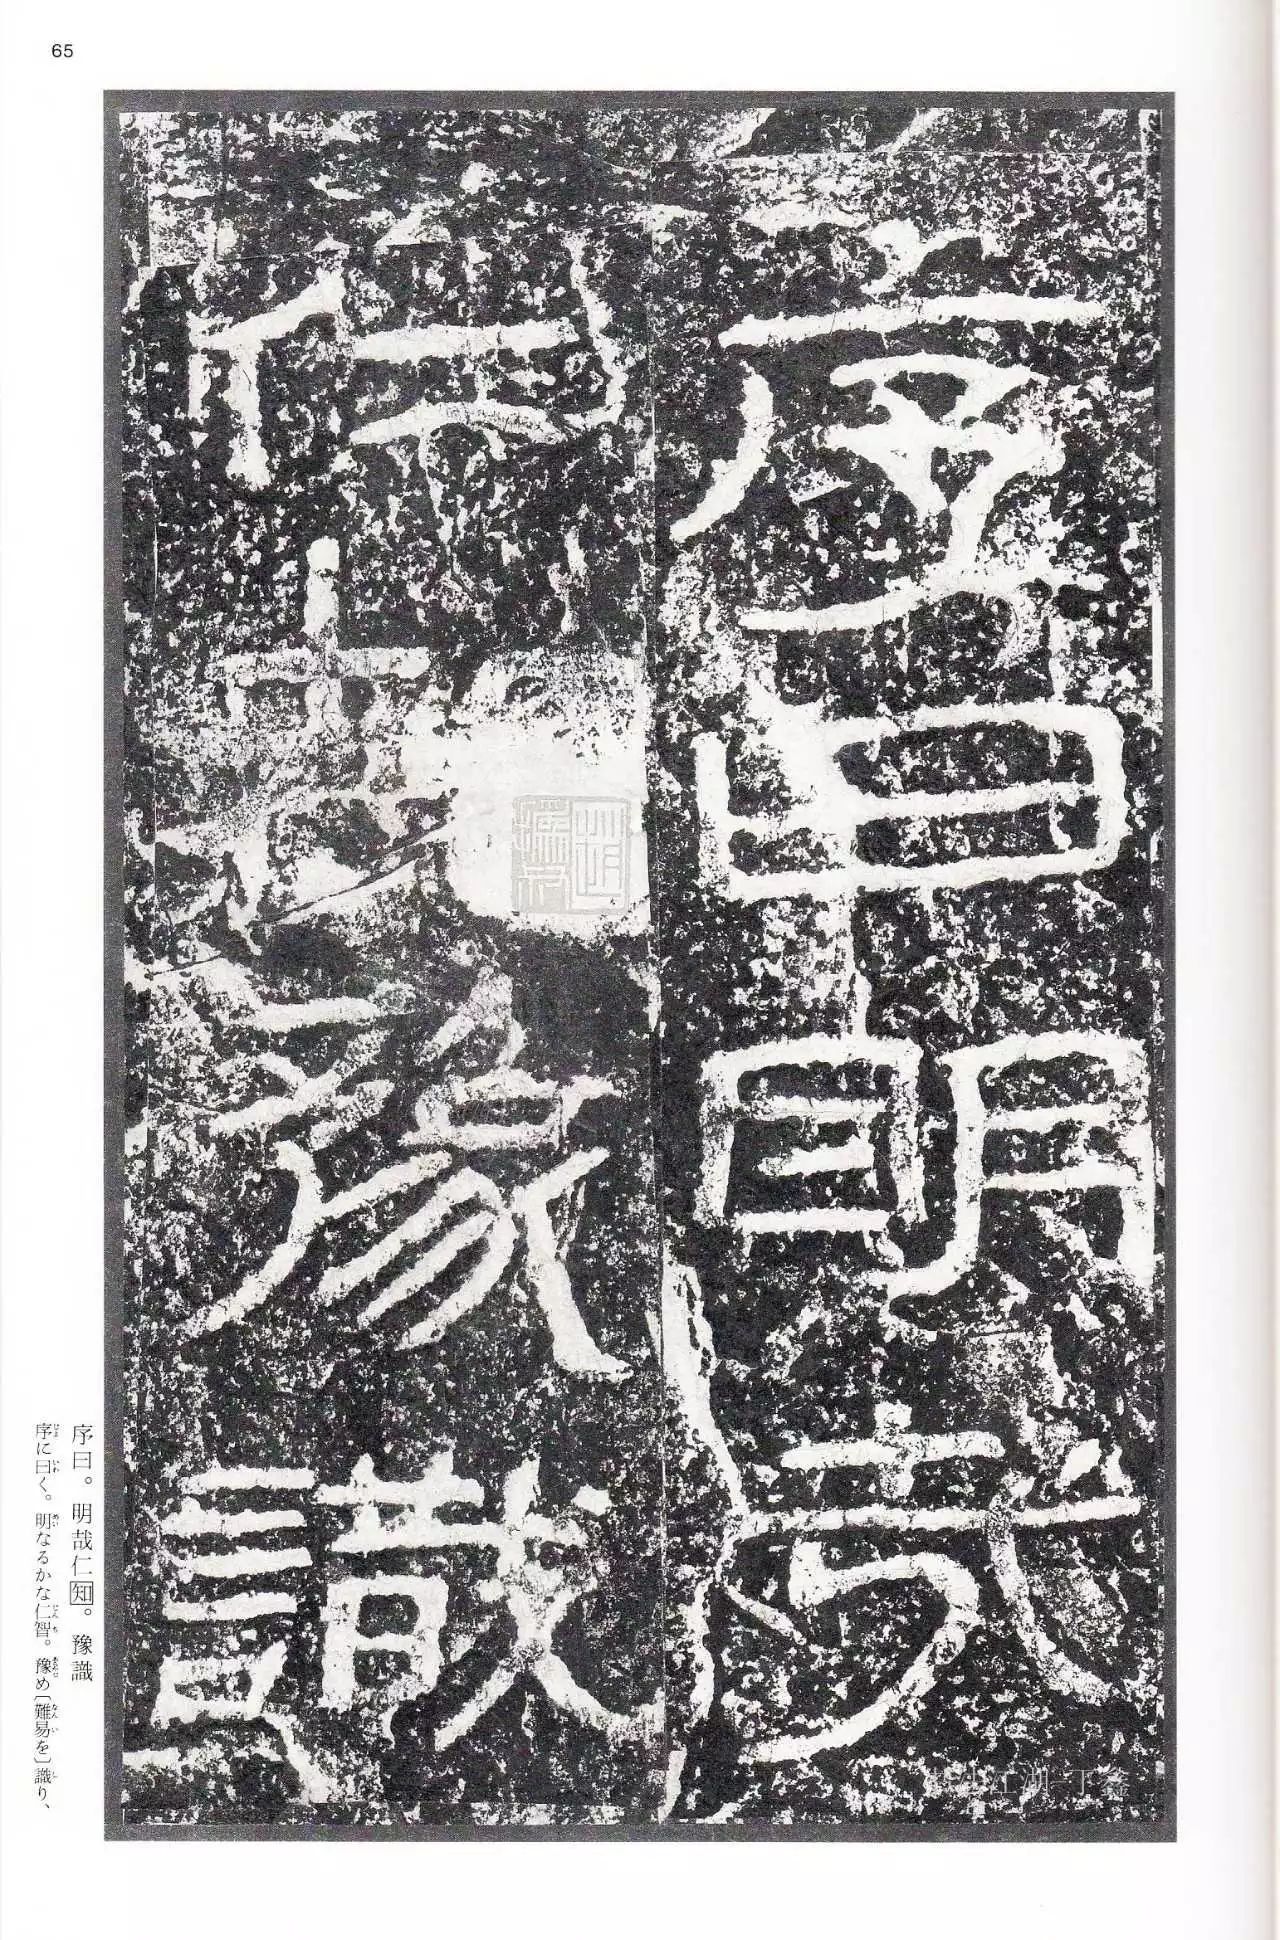 65
序曰明哉
仁豫識
序曰。明哉仁知。豫識
序に曰く。明なるかな仁智。豫め〔難易を〕識り、